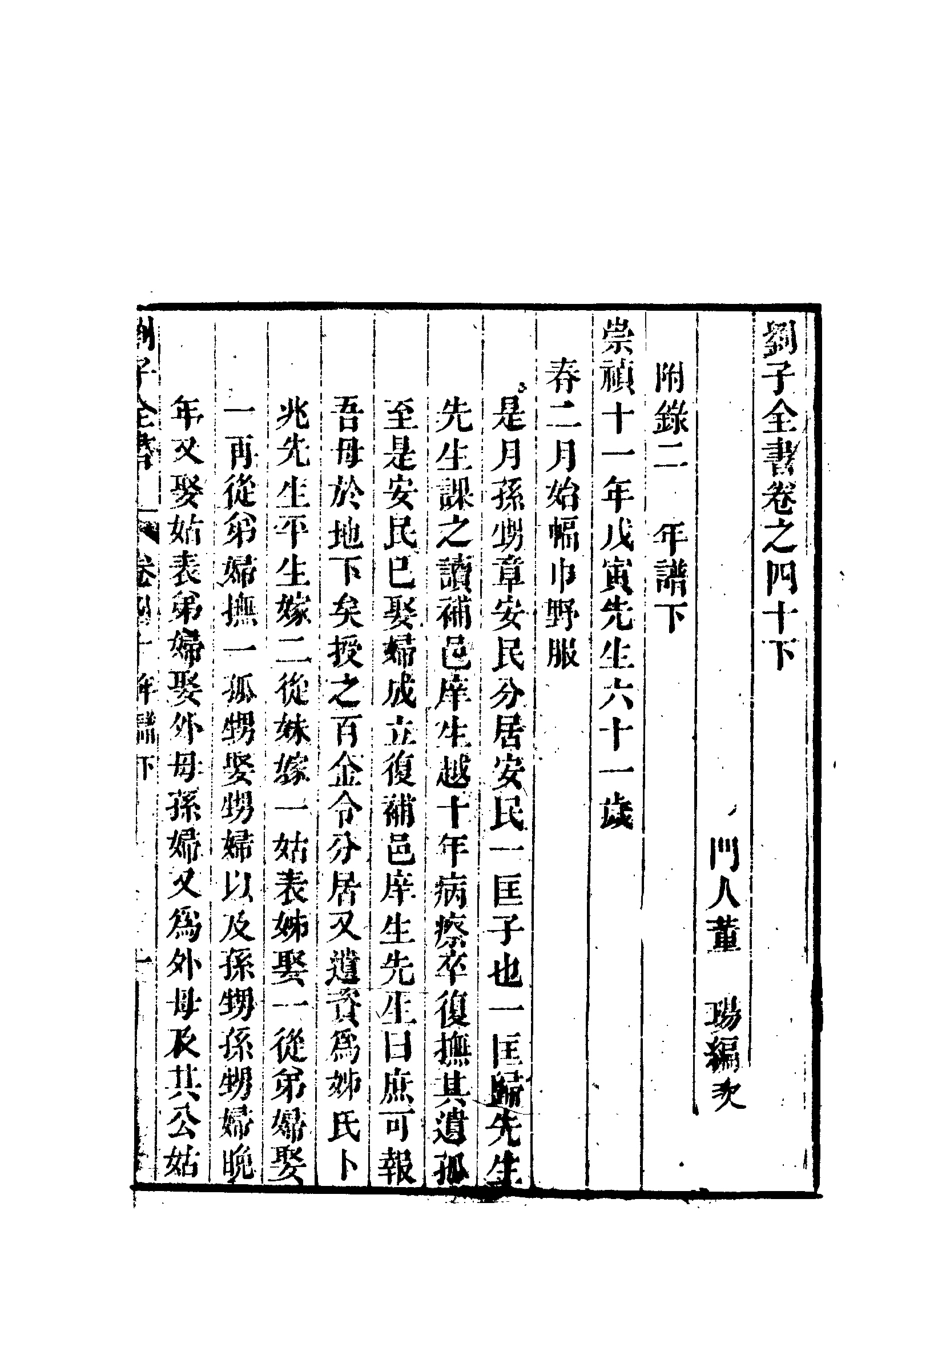 劉子全書卷之四十下
門人董　瑒編次
附錄二　年譜下
崇禎十一年戊寅先生六十一歲
春二月始幅巾野服
是月孫甥章安民分居安民一匡子也一匡歸先生
先生課之讀補邑庠生越十年病瘵卒復撫其遺孤
至是安民已娶婦成立復補邑庠生先生曰庶可報
吾母於地下矣授之百金令分居又遺資爲姊氏卜
兆先生平生嫁二從妹嫁一姑表姊娶一從弟婦娶
一再從弟婦撫一孤甥娶甥婦以及孫甥孫甥婦晚
年又娶姑表弟婦娶外母孫婦又爲外母及其公姑
劉子全書　卷四十年譜下　一